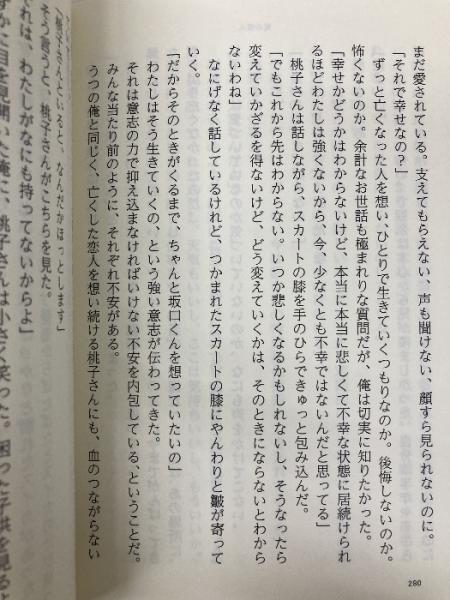 まだ愛されている。支えてもらえない、声も聞けない、顔すら見られないのに。
「それで幸せなの？」
ずっと亡くなった人を想い、ひとりで生きていくつもりなのか。後悔しないのか。
怖くないのか。余計なお世話も極まれりな質問だが、俺は切実に知りたかった。
「幸せかどうかはわからないけど、本当に本当に悲しくて不幸な状態に居続けられ
るほどわたしは強くないから、今、少なくとも不幸ではないんだと思ってる」
桃子さんは話しながら、スカートの膝を手のひらできゅっと包み込んだ。
「でもこれから先はわからない。いつか悲しくなるかもしれないし、そうなったら
変えていかざるを得ないけど、どう変えていくかは、そのときにならないとわから
ないわね」
なにげなく話しているけれど、つかまれたスカートの膝にやんわりと皺が寄って
いく。
「だからそのときがくるまで、ちゃんと坂口くんを想っていたいの」
わたしはそう生きていくの、という強い意志が伝わってきた。
それは意志の力で抑え込まなければいけない不安を内包している、ということだ。
みんな当たり前のように、それぞれ不安がある。
うつの俺と同じく、亡くした恋人を想い続ける桃子さんにも、血のつながらない
280
「桃子さんといると、なんだかほっとします」
そう言うと、桃子さんがこちらを見た。
れは、わたしがなにも持ってないからよ」
目を見開いた俺に、桃子さんは小さく笑った。困った子供を見るよ